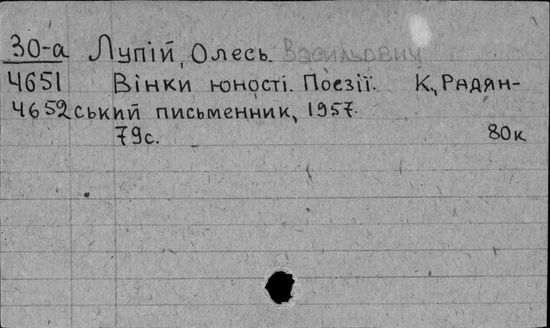 30-а Лупій, Олесь. Васильович
4651 Вінки юності. Поезії. К, Радян-
4652 ський письменник, 1957.
79с. 80к